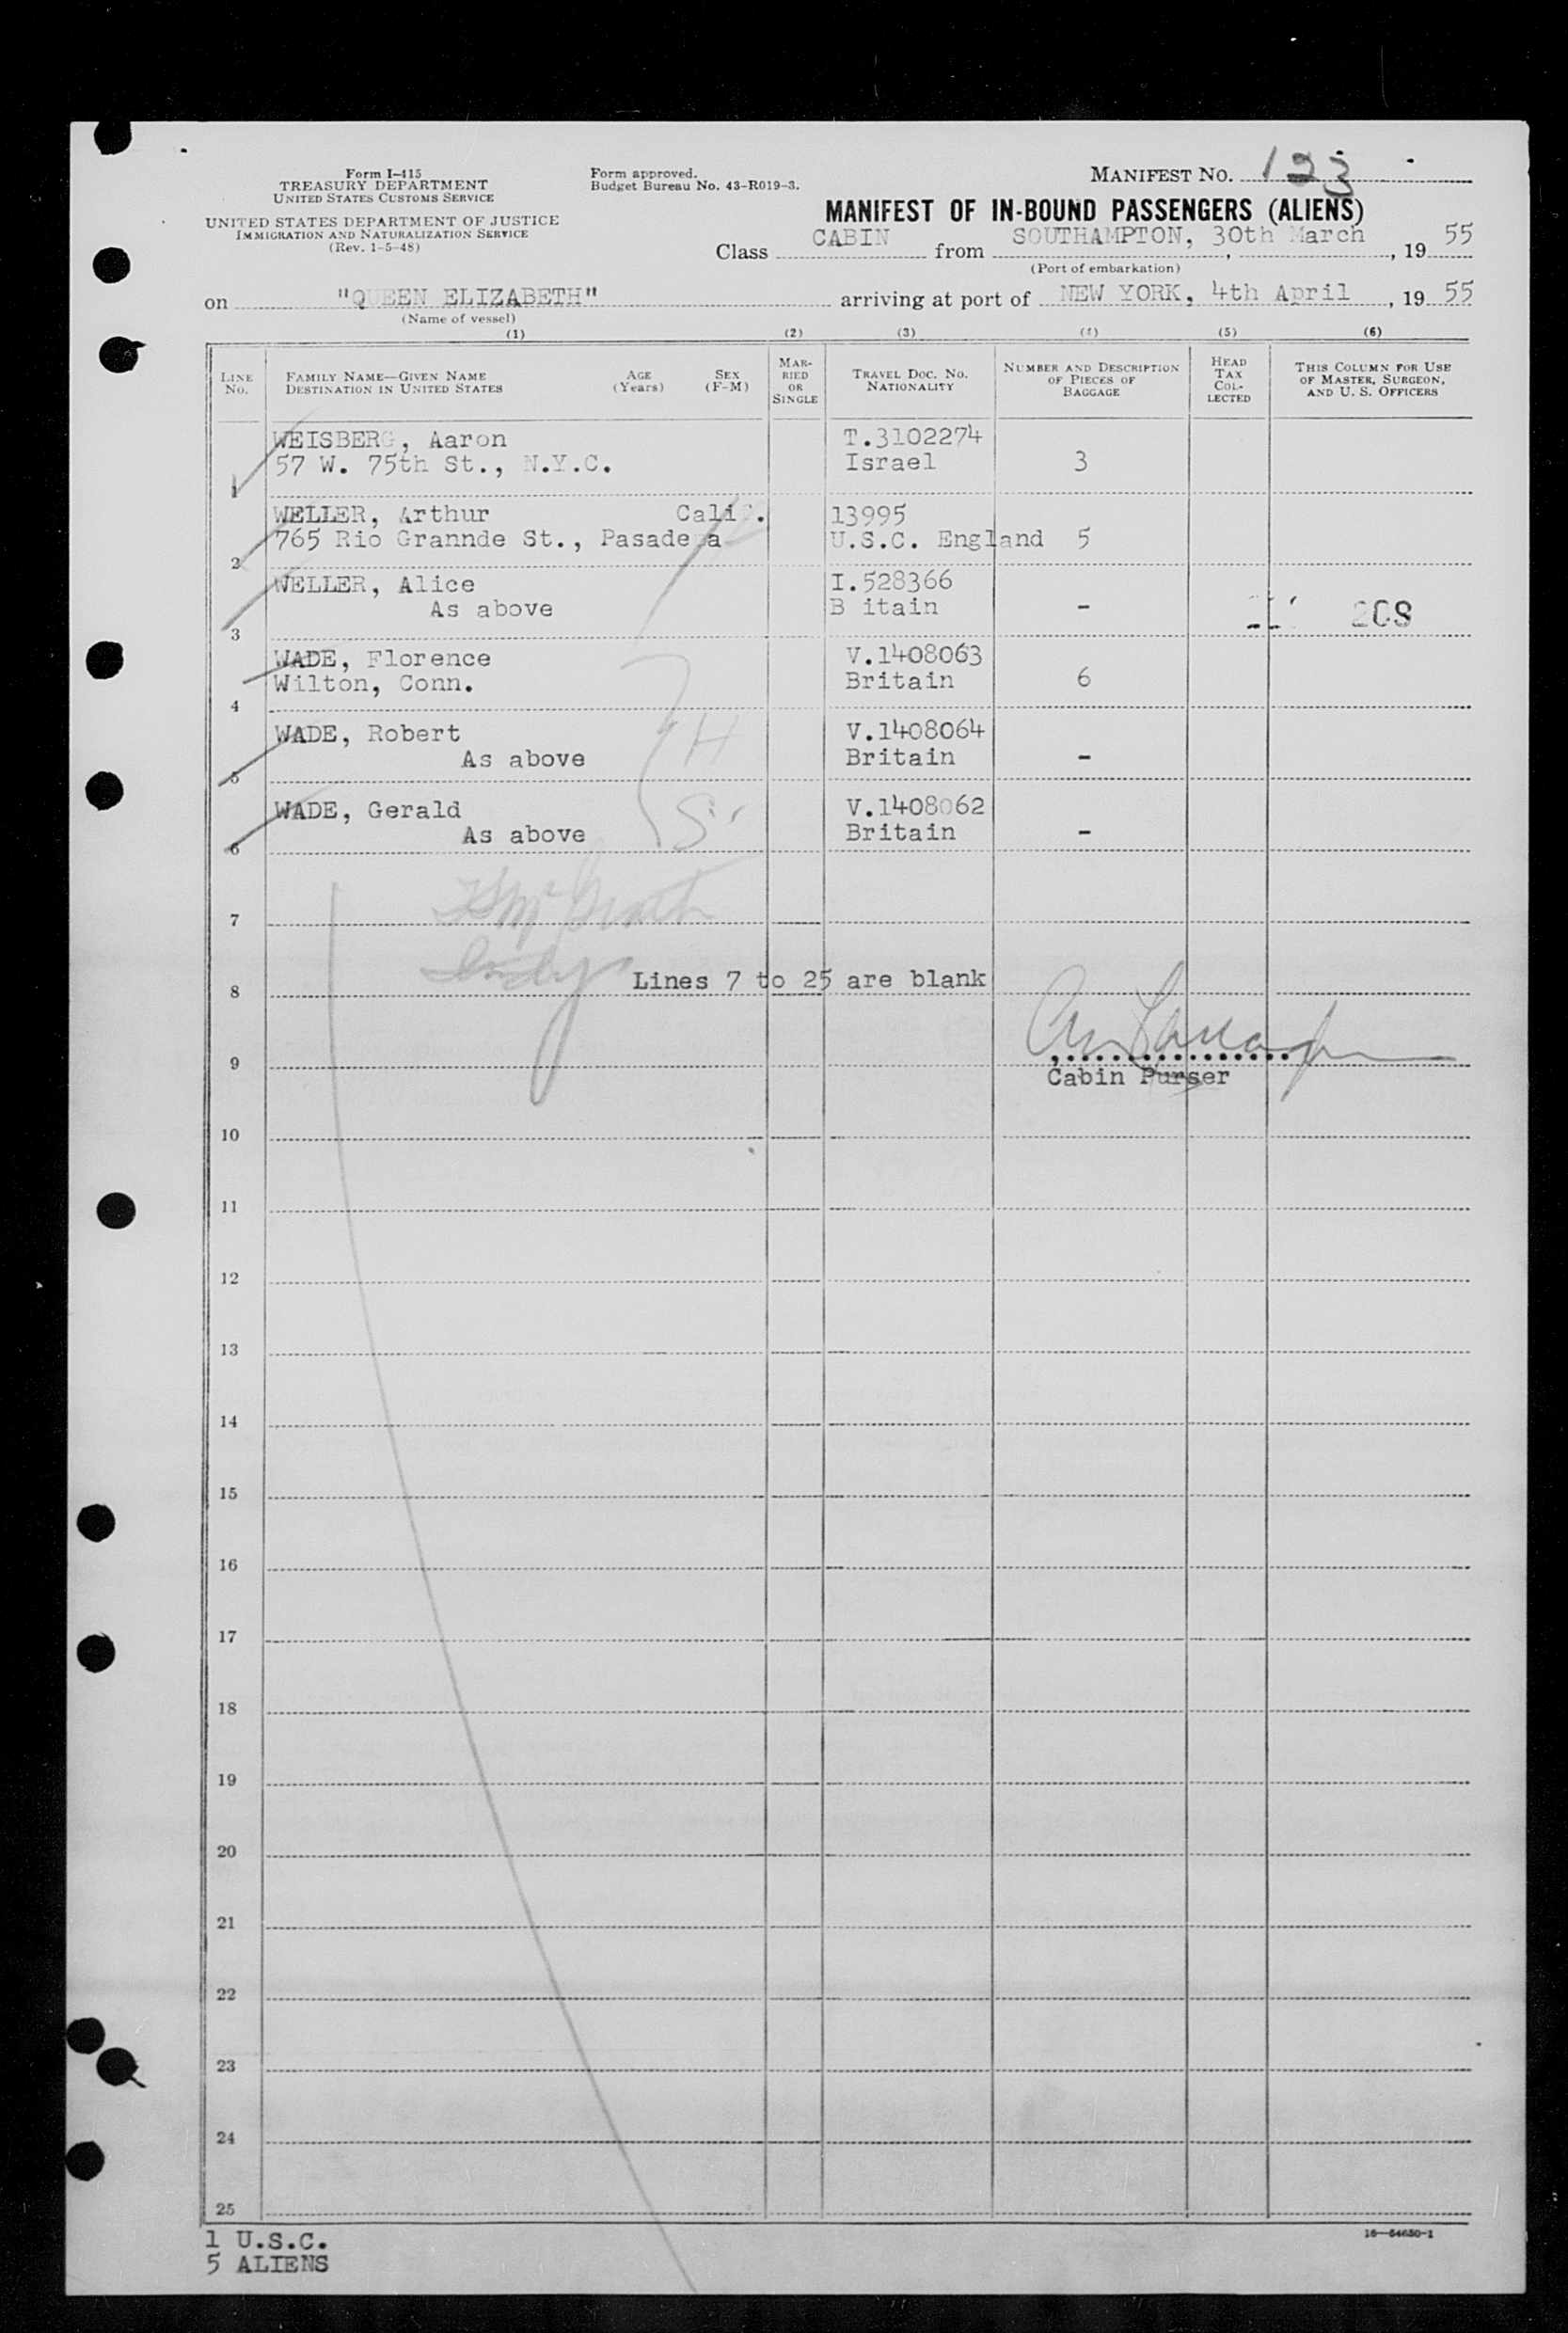 Form I-415
TREASURY DEPARTMENT
UNITED STATES CUSTOMS SERVICE
UNITED STATES DEPARTMENT OF JUSTICE
IMMIGRATION AND NATURALIZATION SERVICE
(Rev. 1-5-48)
Form approved.
Budget Bureau No. 43-R019-3.
MANIFEST NO. 123
MANIFEST OF IN-BOUND PASSENGERS (ALIENS)
Class CABIN from SOUTHAMPTON, 30th March, 19 55
(Port of embarkation)
on "QUEEN ELIZABETH" arriving at port of NEW YORK, 4th April, 19 55
(Name of vessel)
(1) (2) (3) (4) (5) (6)
LINE No. FAMILY NAME—GIVEN NAME DESTINATION IN UNITED STATES AGE (Years) SEX (F-M) MARRIED OR SINGLE TRAVEL DOC. NO. NATIONALITY NUMBER AND DESCRIPTION OF PIECES OF BAGGAGE HEAD TAX COLLECTED THIS COLUMN FOR USE OF MASTER, SURGEON, AND U. S. OFFICERS
WEISBERG, Aaron T.3102274
1 57 W. 75th St., N.Y.C. Israel 3
WELLER, Arthur Calif. 13995
2 765 Rio Grannde St., Pasadena U.S.C. England 5
WELLER, Alice I.528366
3 As above B itain -
WADE, Florence V.1408063
4 Wilton, Conn. Britain 6
WADE, Robert V.1408064
5 As above Britain -
WADE, Gerald V.1408062
6 As above Britain -
7
8 Lines 7 to 25 are blank
9
Cabin Purser
10
11
12
13
14
15
16
17
18
19
20
21
22
23
24
25
1 U.S.C.
5 ALIENS
16—54650-1